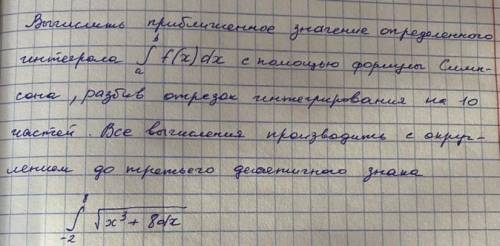 Вычислить приближенное значение определенного
интеграла ∫ₐᵇ f(x)dx с помощью формулы Симп-
сона, разбив отрезок интегрирования на 10
частей. Все вычисления производить с округ-
лением до третьего десятичного знака
∫₋₂⁸ √(x³ + 8dx)